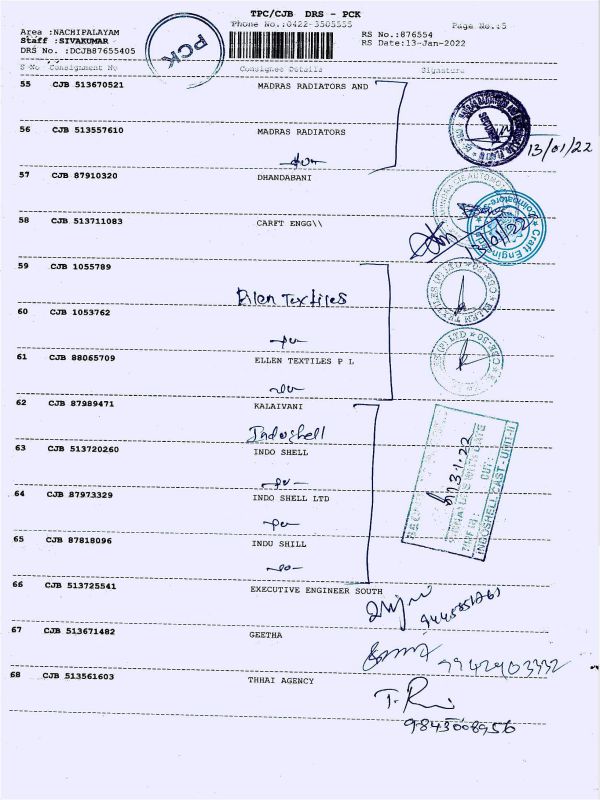 TPC/CJB DRS - PCK
Phone No.:0422-3505555
Page No.:5
Area :NACHIPALAYAM
Staff :SIVAKUMAR
DRS No. :DCJB87655405
PCK
RS No.:876554
RS Date:13-Jan-2022
S No Consignment No Consignee Details Signature
55 CJB 513670521 MADRAS RADIATORS AND
56 CJB 513557610 MADRAS RADIATORS
13/01/22
57 CJB 87910320 DHANDABANI
58 CJB 513711083 CARFT ENGG\\
59 CJB 1055789
Ellen Textiles
60 CJB 1053762
61 CJB 88065709 ELLEN TEXTILES P L
62 CJB 87989471 KALAIVANI
Indoshell
63 CJB 513720260 INDO SHELL
64 CJB 87973329 INDO SHELL LTD
65 CJB 87818096 INDU SHILL
13.1.22
SIGNATURE WITH DATE
TIME IN: OUT:
INDOSHELL CAST - UNIT-II
66 CJB 513725541 EXECUTIVE ENGINEER SOUTH
67 CJB 513671482 GEETHA
9942903332
68 CJB 513561603 THHAI AGENCY
9843008950